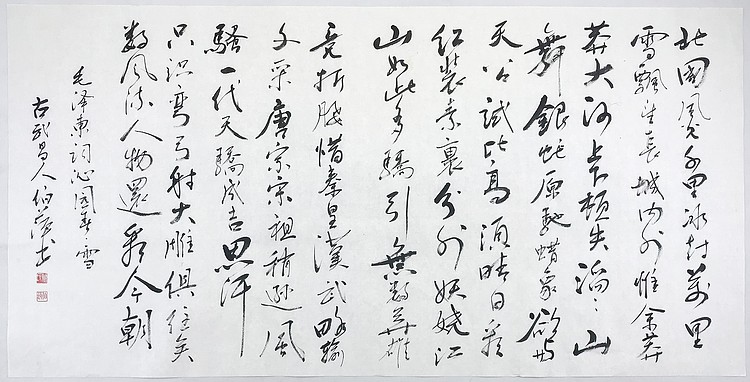 北國風光千里冰封萬里
雪飄望長城内外惟余莽
莽大河上下頓失滔〻山
舞銀蛇原馳蜡象欲与
天公試比高須晴日看
红装素裹分外妖娆江
山如此多驕引無數英雄
竞折腰惜秦皇漢武略輸
文采唐宗宋祖稍逊風
騷一代天驕成吉思汗
只识弯弓射大雕俱往矣
数风流人物還看今朝
毛泽東词沁园春雪
古武昌人伯书